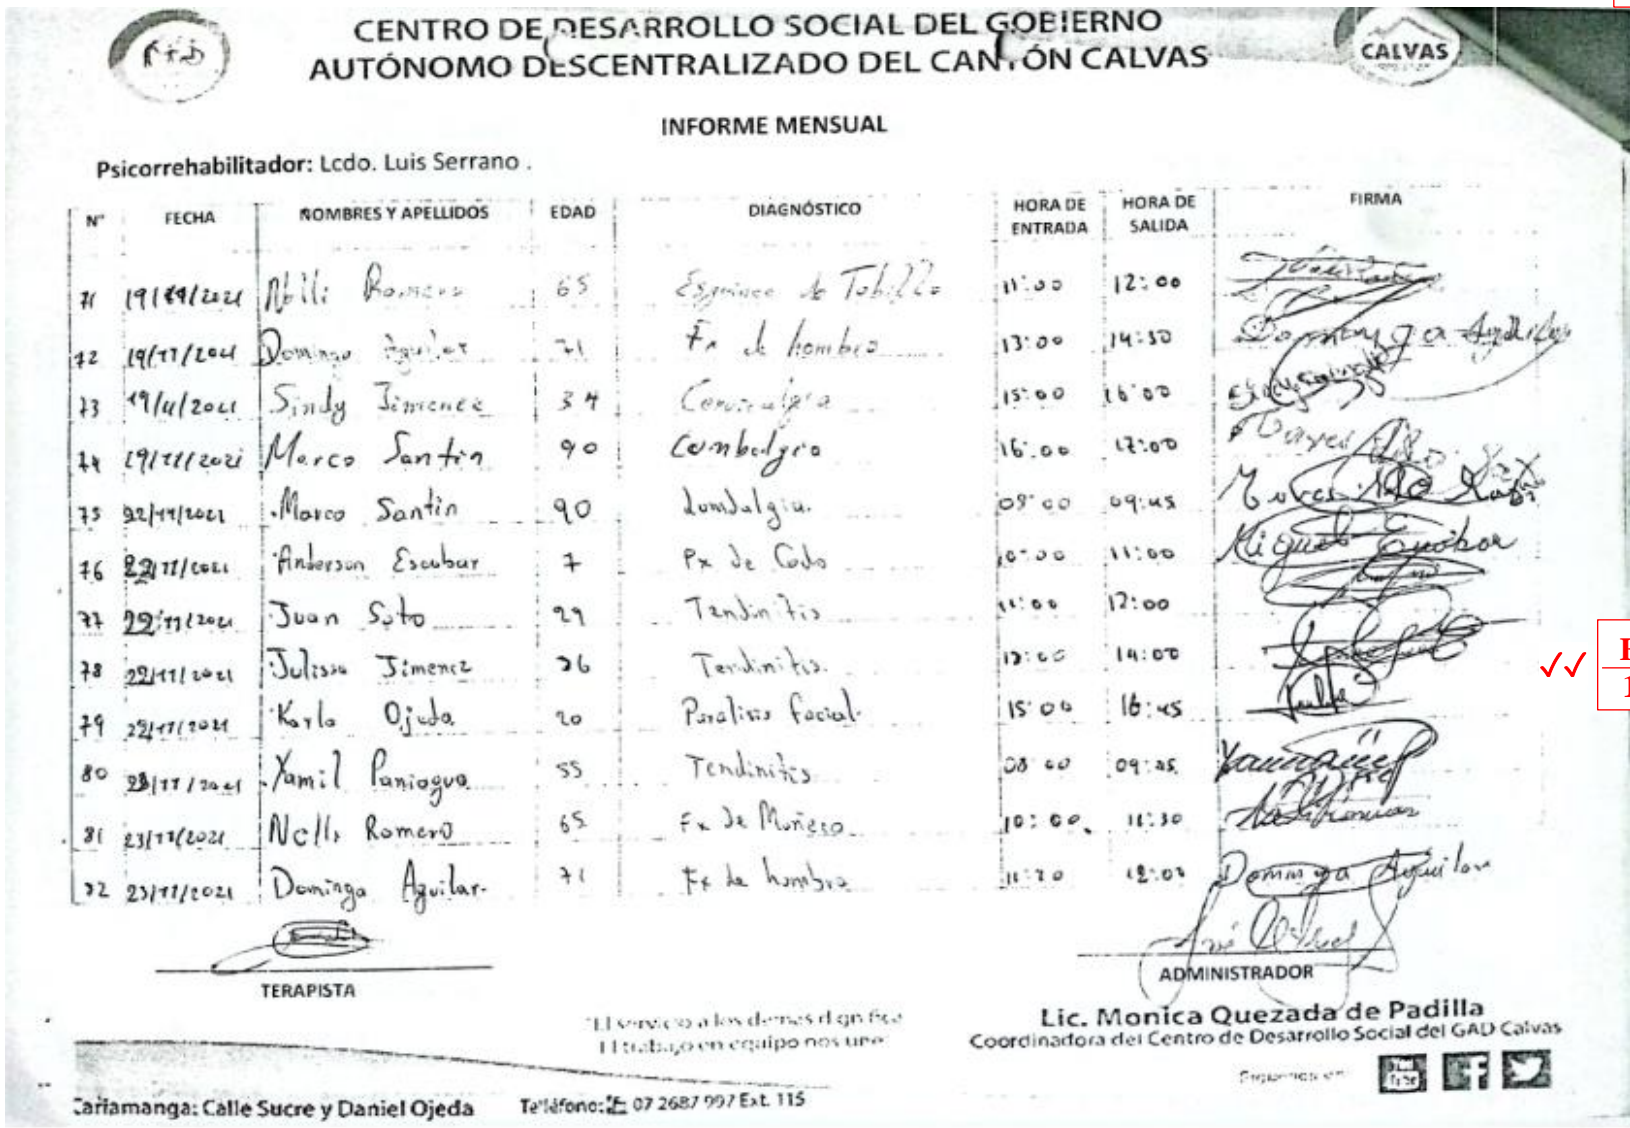 CENTRO DE DESARROLLO SOCIAL DEL GOBIERNO
AUTÓNOMO DESCENTRALIZADO DEL CANTÓN CALVAS
CALVAS
INFORME MENSUAL
Psicorrehabilitador: Lcdo. Luis Serrano .
N° FECHA NOMBRES Y APELLIDOS EDAD DIAGNÓSTICO HORA DE ENTRADA HORA DE SALIDA FIRMA
71 19/11/2021 Romero 65 de Tobillo 11:00 12:00
72 19/11/2021 Dominga Aguilar 71 Fx de hombro 13:00 14:30 Dominga Aguilar
73 19/11/2021 Sindy Jimenez 34 Cervicalgia 15:00 16:00
74 19/11/2021 Marco Santin 90 Lumbalgia 16:00 17:00
75 22/11/2021 Marco Santin 90 Lumbalgia. 08:00 09:45
76 22/11/2021 Anderson Escobar 7 Fx de Codo 10:00 11:00 Miguel Escobar
77 22/11/2021 Juan Soto 29 Tendinitis 11:00 12:00
78 22/11/2021 Julissa Jimenez 36 Tendinitis. 13:00 14:00
79 22/11/2021 Karla Ojeda 20 Paralisis facial 15:00 16:45
80 23/11/2021 Yamil Paniagua 55 Tendinitis 08:00 09:45
81 23/11/2021 Nelli Romero 65 Fx de Muñeca 10:00 11:30
82 23/11/2021 Dominga Aguilar 71 Fx de hombro 11:30 12:00 Dominga Aguilar
TERAPISTA
ADMINISTRADOR
Lic. Monica Quezada de Padilla
Coordinadora del Centro de Desarrollo Social del GAD Calvas
"El servicio a los demas dignifica
El trabajo en equipo nos une"
Siguenos en
You Tube
Cariamanga: Calle Sucre y Daniel Ojeda Teléfono: 07 2687 997 Ext. 115